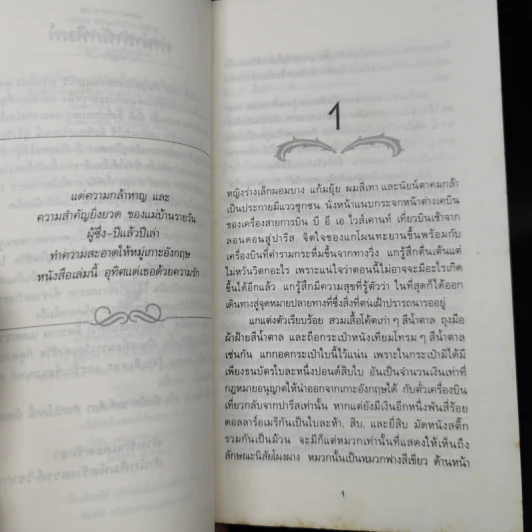 แต่ความกล้าหาญ และ
ความสำคัญยิ่งยวด ของแม่บ้านรายวัน
ผู้ซึ่ง-ปีแล้วปีเล่า
ทำความสะอาดให้หมู่เกาะอังกฤษ
หนังสือเล่มนี้ อุทิศแด่เธอด้วยความรัก
1
หญิงร่างเล็กผอมบาง แก้มยุ้ย ผมสีเทา และนัยน์ตาคมกล้า
เป็นประกายมีแววซุกซน นั่งหน้าแนบกระจกหน้าต่างเคบิน
ของเครื่องสายการบิน บี อี เอ ไวส์เคานท์ เที่ยวบินเช้าจาก
ลอนดอนสู่ปารีส จิตใจของแกโผนทะยานขึ้นพร้อมกับ
เครื่องบินที่คำรามกระหึ่มขึ้นจากทางวิ่ง แกรู้สึกตื่นเต้นแต่
ไม่หวั่นวิตกอะไร เพราะแน่ใจว่าตอนนี้ไม่อาจจะมีอะไรเกิด
ขึ้นได้อีกแล้ว แกรู้สึกมีความสุขที่รู้ตัวว่า ในที่สุดก็ได้ออก
เดินทางสู่จุดหมายปลายทางที่ซึ่งสิ่งที่ตนเฝ้าปรารถนารออยู่
แกแต่งตัวเรียบร้อย สวมเสื้อโค้ตเก่าๆ สีน้ำตาล ถุงมือ
ผ้าฝ้ายสีน้ำตาล และถือกระเป๋าหนังเทียมโทรมๆ สีน้ำตาล
เช่นกัน แกกอดกระเป๋าใบนี้ไว้แน่น เพราะในกระเป๋ามิได้มี
เพียงธนบัตรใบละหนึ่งปอนด์สิบใบ อันเป็นจำนวนเงินเท่าที่
กฎหมายอนุญาตให้นำออกจากเกาะอังกฤษได้ กับตั๋วเครื่องบิน
เที่ยวกลับจากปารีสเท่านั้น หากแต่ยังมีเงินอีกหนึ่งพันสี่ร้อย
ดอลลาร์อเมริกันเป็นใบละห้า, สิบ, และยี่สิบ มัดหนังสติ๊ก
รวมกันเป็นม้วน จะมีก็แต่หมวกเท่านั้นที่แสดงให้เห็นถึง
ลักษณะนิสัยโผงผาง หมวกนั้นเป็นหมวกฟางสีเขียว ด้านหน้า
1